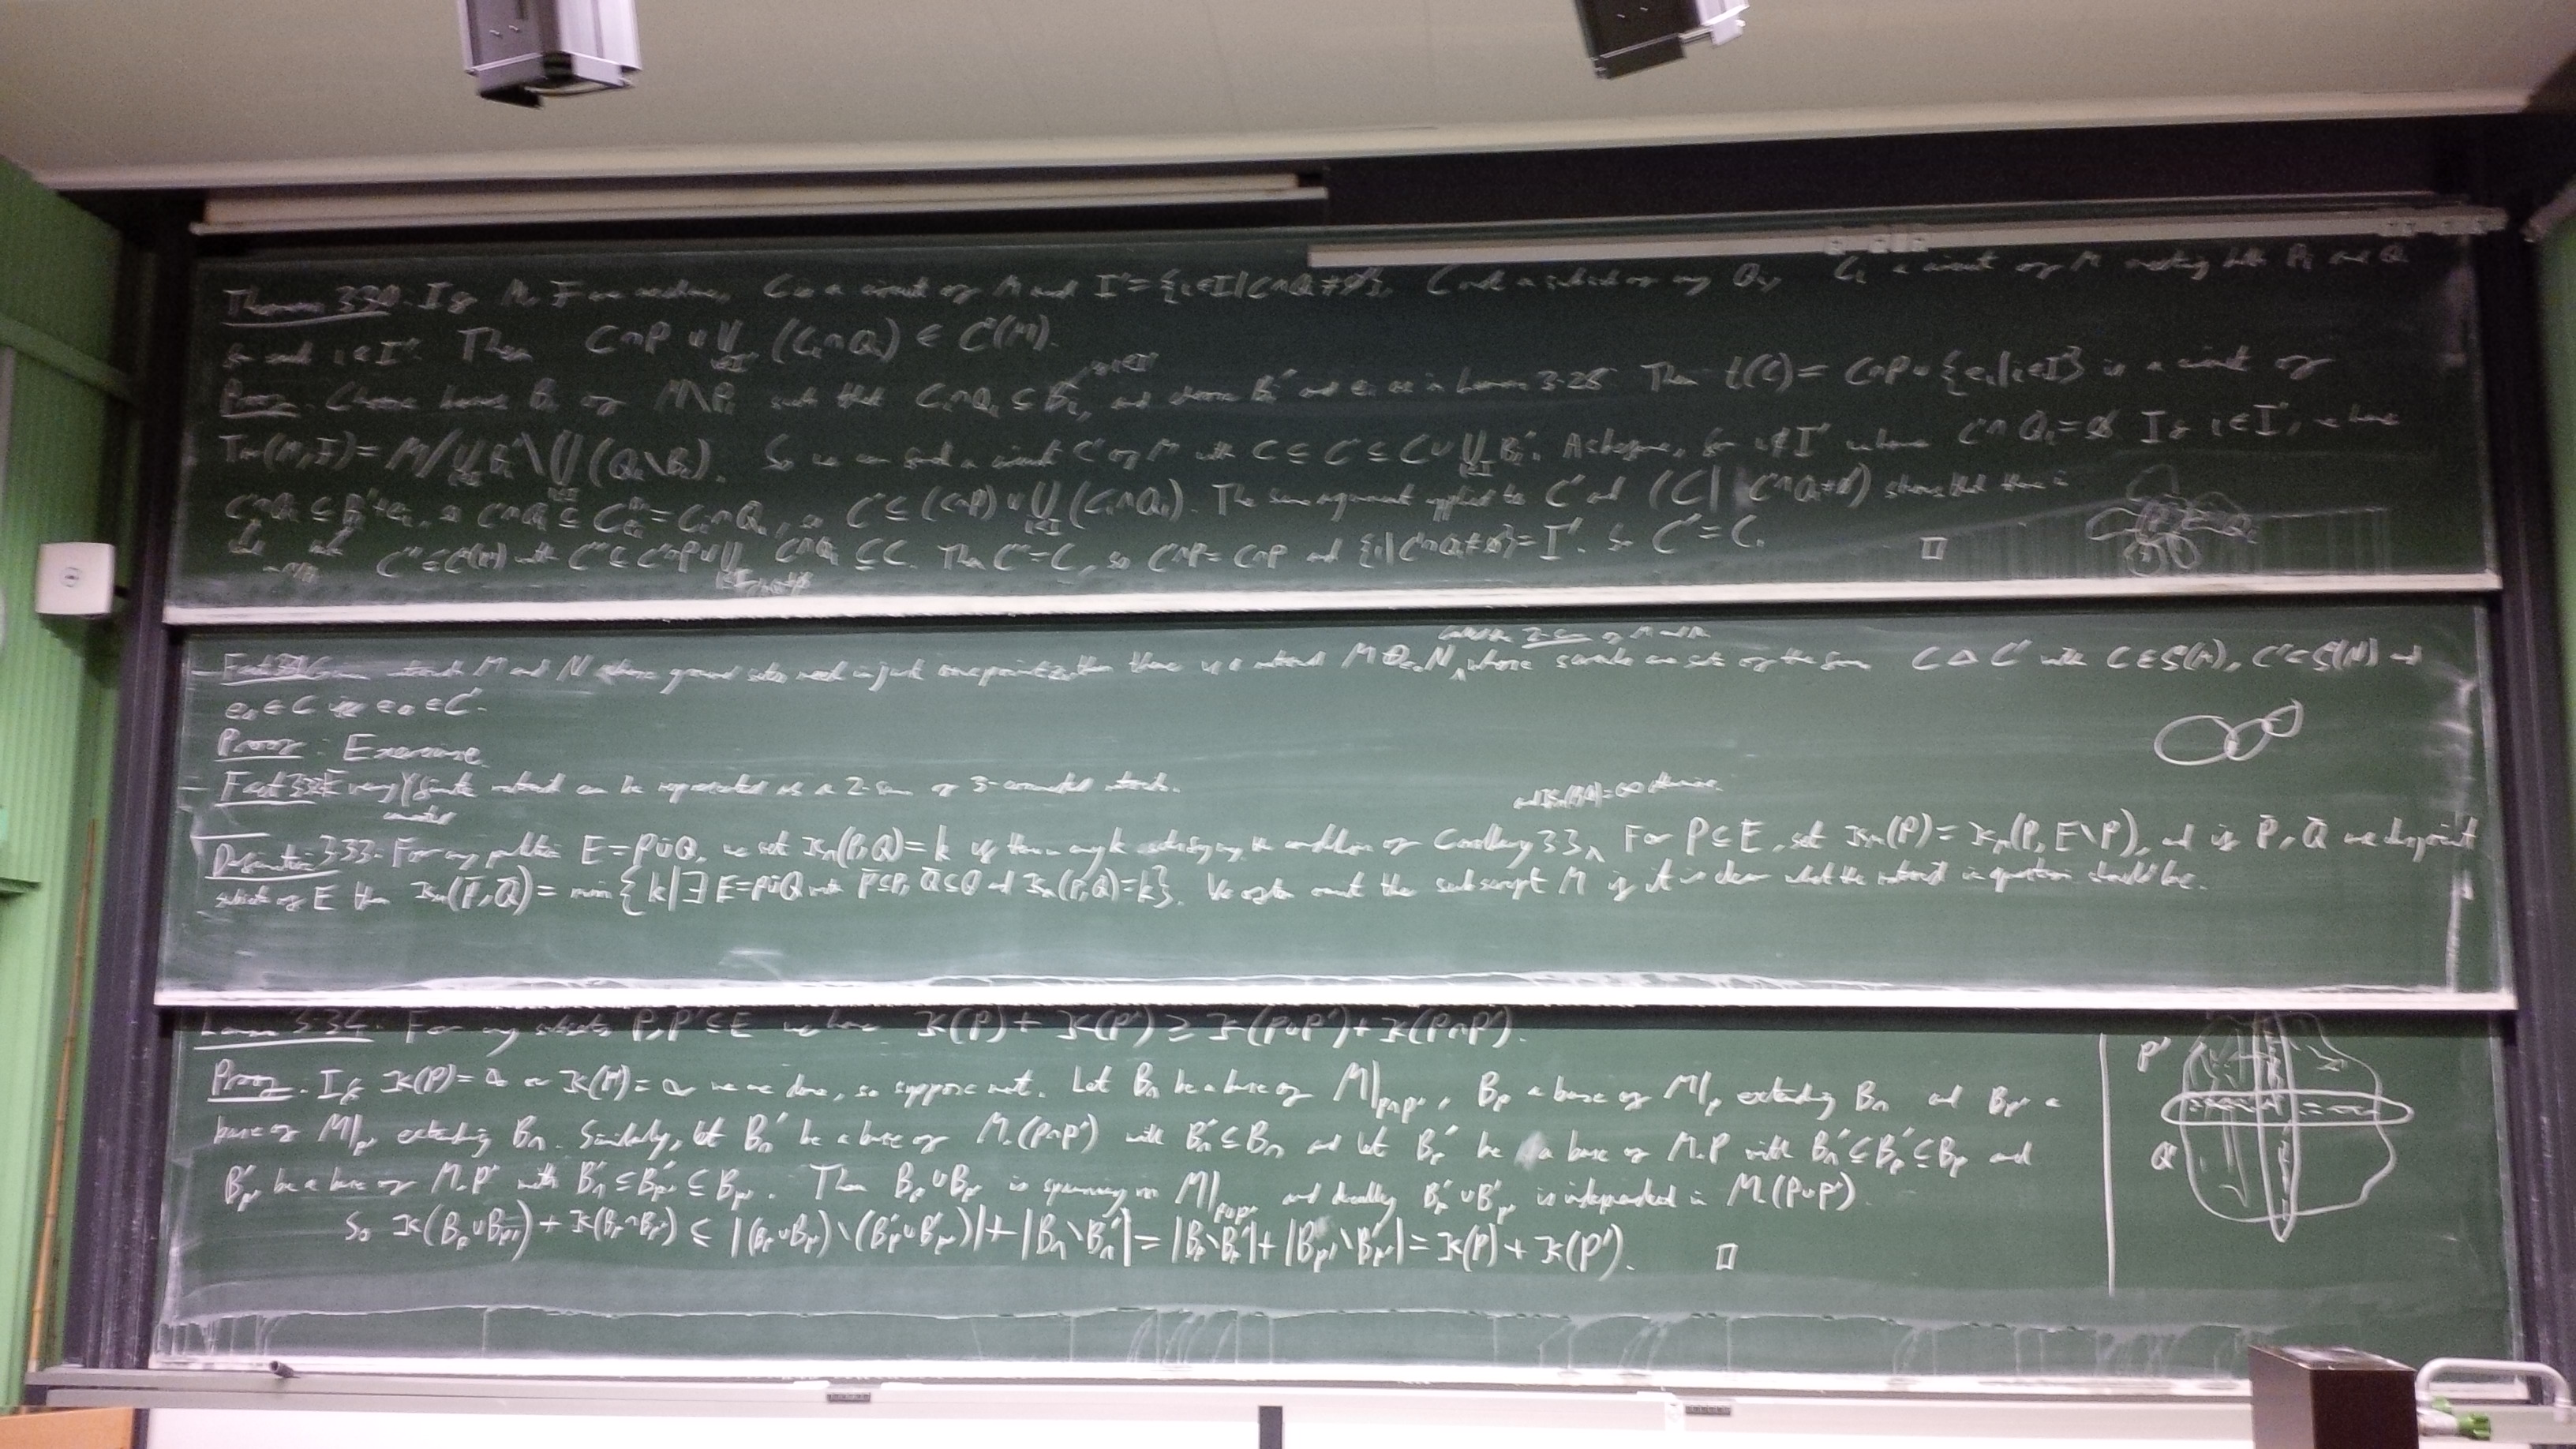 Theorem 3.30. If M, F are as above, C is a circuit of M and I' = {i ∈ I | C∩Q_i ≠ ∅}, C not a subset of any Q_i, C_i a circuit of M meeting both P_i and Q_i
for each i ∈ I'. Then C∩P ∪ ⋃_{i∈I'} (C_i∩Q_i) ∈ C(M).
Proof. Choose bases B_i of M\P_i such that C_i∩Q_i ⊆ B_i, and choose B_i' and e_i as in Lemma 3.28. Then t(C) = C∩P ∪ {e_i | i∈I'} is a circuit of
= M/⋃ B_i' \ ⋃ (Q_i\B_i). So we can find a circuit C' of M with C ⊆ C' ⊆ C ∪ ⋃ B_i'. As before, for i∉I' we have C'∩Q_i = ∅. If i∈I', we have
C'∩Q_i ⊆ B_i'+e_i, so = C_i∩Q_i, so C' ⊆ (C∩P) ∪ ⋃ (C_i∩Q_i). The same argument applied to C' and shows that there is
C'' ∈ C(M) with C'' ⊆ C'∩P ∪ ⋃ C∩Q_i ⊆ C. Then C'' = C, so C'∩P = C∩P and {i | C'∩Q_i ≠ ∅} = I'. So □
called the 2-sum of M and N
Fact 3.31 Given matroids M and N whose ground sets meet in just one point e_0 then there is a matroid M ⊕ N, whose scrawls are sets of the form C △ C' with C ∈ S(M), C' ∈ S(N) and
e_0 ∈ C iff e_0 ∈ C'.
Proof: Exercise.
Fact 3.32 Every finite matroid can be represented as a 2-sum of 3-connected matroids.
connected
and κ_M(P,Q) = ∞ otherwise.
Definition 3.33. For any partition E = P ∪̇ Q, we set κ_M(P,Q) = k if there is any k satisfying the condition of Corollary 3.3, For P ⊆ E, set κ_M(P) = κ_M(P, E\P), and if P̄, Q̄ are disjoint
subsets of E then κ_M(P̄, Q̄) = min {k | ∃ E = P ∪̇ Q with P̄ ⊆ P, Q̄ ⊆ Q and κ_M(P,Q) = k}. We often omit the subscript M if it is clear what the matroid in question should be.
Lemma 3.34. For any subsets P, P' ⊆ E we have κ(P) + κ(P') ≥ κ(P∪P') + κ(P∩P').
Proof. If κ(P) = ∞ or κ(P') = ∞ we are done, so suppose not. Let B_∩ be a base of M|_{P∩P'}, B_P a base of M|_P extending B_∩ and B_{P'} a
base of M|_{P'} extending B_∩. Similarly, let B_∩' be a base of M.(P∩P') with B_∩' ⊆ B_∩ and let B_P' be a base of M.P with B_∩' ⊆ B_P' ⊆ B_P and
B'_{P'} be a base of M.P' with B_∩' ⊆ B'_{P'} ⊆ B_{P'}. Then B_P ∪ B_{P'} is spanning in M|_{P∪P'} and dually B_P' ∪ B'_{P'} is independent in M.(P∪P').
So κ(B_P ∪ B_{P'}) + κ(B_P ∩ B_{P'}) ≤ |(B_P ∪ B_{P'}) \ (B_P' ∪ B'_{P'})| + |B_∩ \ B_∩'| = |B_P \ B_P'| + |B_{P'} \ B'_{P'}| = κ(P) + κ(P'). □
P'
Q